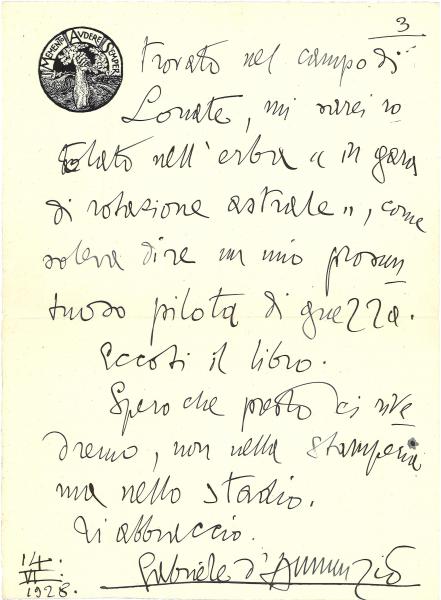 3
MEMENTO AUDERE SEMPER
trovato nel campo di
Lonate, mi sarei ro
tolato nell'erba "in gara
di rotazione astrale", come
soleva dire un mio prosun
tuoso pilota di guerra.
Eccoti il libro.
Spero che presto ci rive
dremo, non nella stamperia
ma nello stadio.
Ti abbraccio.
Gabriele d'Annunzio
14.
VI.
1928.